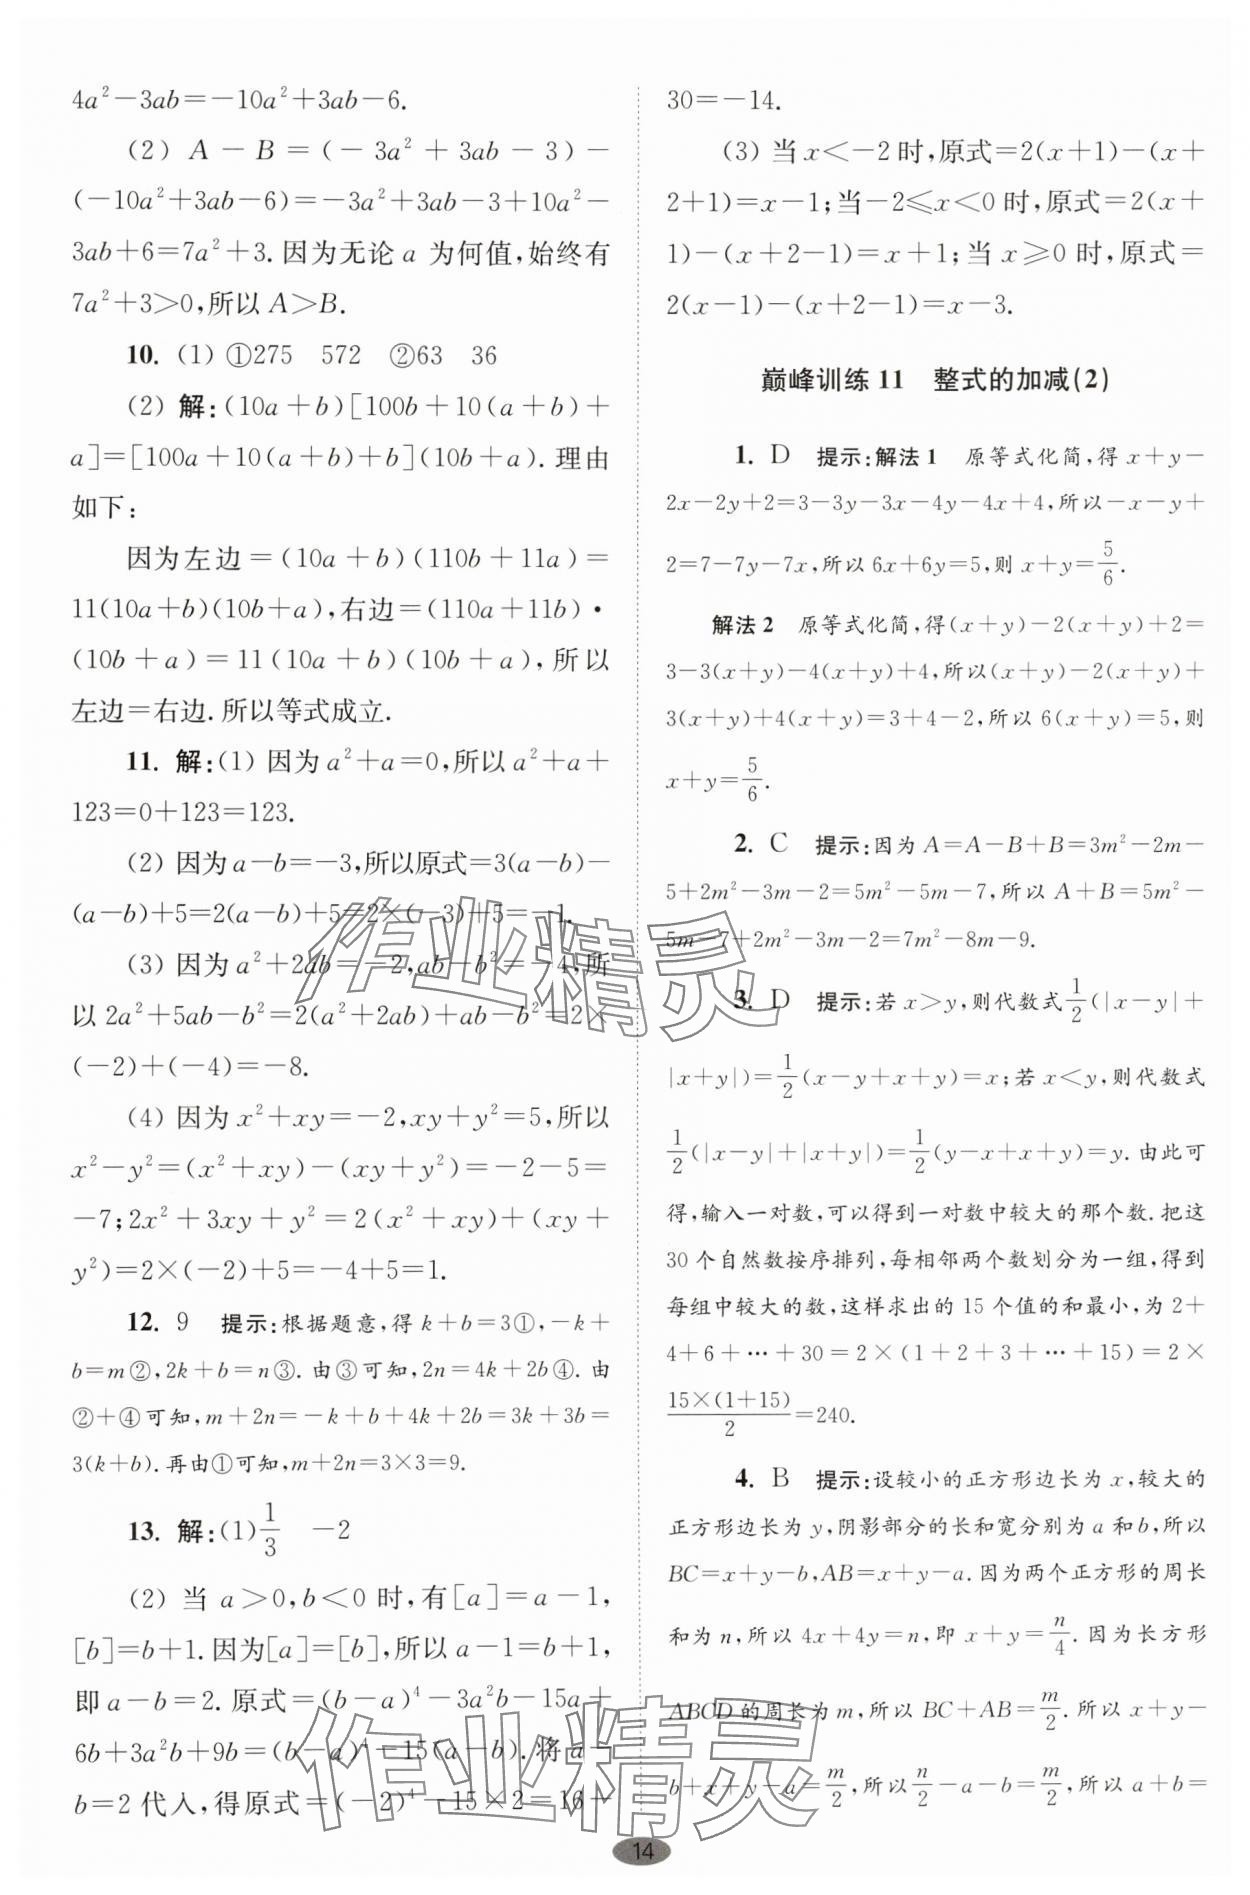 4a²－3ab＝－10a²＋3ab－6.
(2) A－B＝(－3a²＋3ab－3)－
(－10a²＋3ab－6)＝－3a²＋3ab－3＋10a²－
3ab＋6＝7a²＋3.因为无论a 为何值,始终有
7a²＋3＞0,所以 A＞B.
10. (1) ①275 572 ②63 36
(2) 解:(10a＋b)[100b＋10(a＋b)＋
a]＝[100a＋10(a＋b)＋b](10b＋a).理由
如下:
因为左边＝(10a＋b)(110b＋11a)＝
11(10a＋b)(10b＋a),右边＝(110a＋11b)·
(10b＋a)＝11(10a＋b)(10b＋a),所以
左边＝右边.所以等式成立.
11. 解:(1) 因为a²＋a＝0,所以a²＋a＋
123＝0＋123＝123.
(2) 因为a－b＝－3,所以原式＝3(a－b)－
(a－b)＋5＝2(a－b)＋5＝2×(－3)＋5＝－1.
(3) 因为a²＋2ab＝－2,ab－b²＝－4,所
以 2a²＋5ab－b²＝2(a²＋2ab)＋ab－b²＝2×
(－2)＋(－4)＝－8.
(4) 因为x²＋xy＝－2,xy＋y²＝5,所以
x²－y²＝(x²＋xy)－(xy＋y²)＝－2－5＝
－7;2x²＋3xy＋y²＝2(x²＋xy)＋(xy＋
y²)＝2×(－2)＋5＝－4＋5＝1.
12. 9 提示:根据题意,得k＋b＝3①,－k＋
b＝m②,2k＋b＝n③.由③可知,2n＝4k＋2b④.由
②＋④可知,m＋2n＝－k＋b＋4k＋2b＝3k＋3b＝
3(k＋b).再由①可知,m＋2n＝3×3＝9.
13. 解:(1) 1/3 －2
(2) 当 a＞0,b＜0 时,有[a]＝a－1,
[b]＝b＋1.因为[a]＝[b],所以 a－1＝b＋1,
即 a－b＝2.原式＝(b－a)⁴－3a²b－15a＋
6b＋3a²b＋9b＝(b－a)⁴－15(a－b).将a－
b＝2代入,得原式＝(－2)⁴－15×2＝16－
30＝－14.
(3) 当x＜－2时,原式＝2(x＋1)－(x＋
2＋1)＝x－1;当－2≤x＜0时,原式＝2(x＋
1)－(x＋2－1)＝x＋1;当 x≥0 时,原式＝
2(x－1)－(x＋2－1)＝x－3.
巅峰训练11 整式的加减(2)
1. D 提示:解法1 原等式化简,得x＋y－
2x－2y＋2＝3－3y－3x－4y－4x＋4,所以－x－y＋
2＝7－7y－7x,所以6x＋6y＝5,则x＋y＝5/6.
解法2 原等式化简,得(x＋y)－2(x＋y)＋2＝
3－3(x＋y)－4(x＋y)＋4,所以(x＋y)－2(x＋y)＋
3(x＋y)＋4(x＋y)＝3＋4－2,所以6(x＋y)＝5,则
x＋y＝5/6.
2. C 提示:因为A＝A－B＋B＝3m²－2m－
5＋2m²－3m－2＝5m²－5m－7,所以A＋B＝5m²－
5m－7＋2m²－3m－2＝7m²－8m－9.
3. D 提示:若x＞y,则代数式1/2(|x－y|＋
|x＋y|)＝1/2(x－y＋x＋y)＝x;若x＜y,则代数式
1/2(|x－y|＋|x＋y|)＝1/2(y－x＋x＋y)＝y.由此可
得,输入一对数,可以得到一对数中较大的那个数.把这
30个自然数按序排列,每相邻两个数划分为一组,得到
每组中较大的数,这样求出的15个值的和最小,为2＋
4＋6＋…＋30＝2×(1＋2＋3＋…＋15)＝2×
15×(1＋15)/2＝240.
4. B 提示:设较小的正方形边长为x,较大的
正方形边长为y,阴影部分的长和宽分别为a和b,所以
BC＝x＋y－b,AB＝x＋y－a.因为两个正方形的周长
和为n,所以4x＋4y＝n,即x＋y＝n/4.因为长方形
ABCD的周长为m,所以BC＋AB＝m/2.所以x＋y－
b＋x＋y－a＝m/2,所以n/2－a－b＝m/2,所以a＋b＝
14
作业精灵
作业精灵